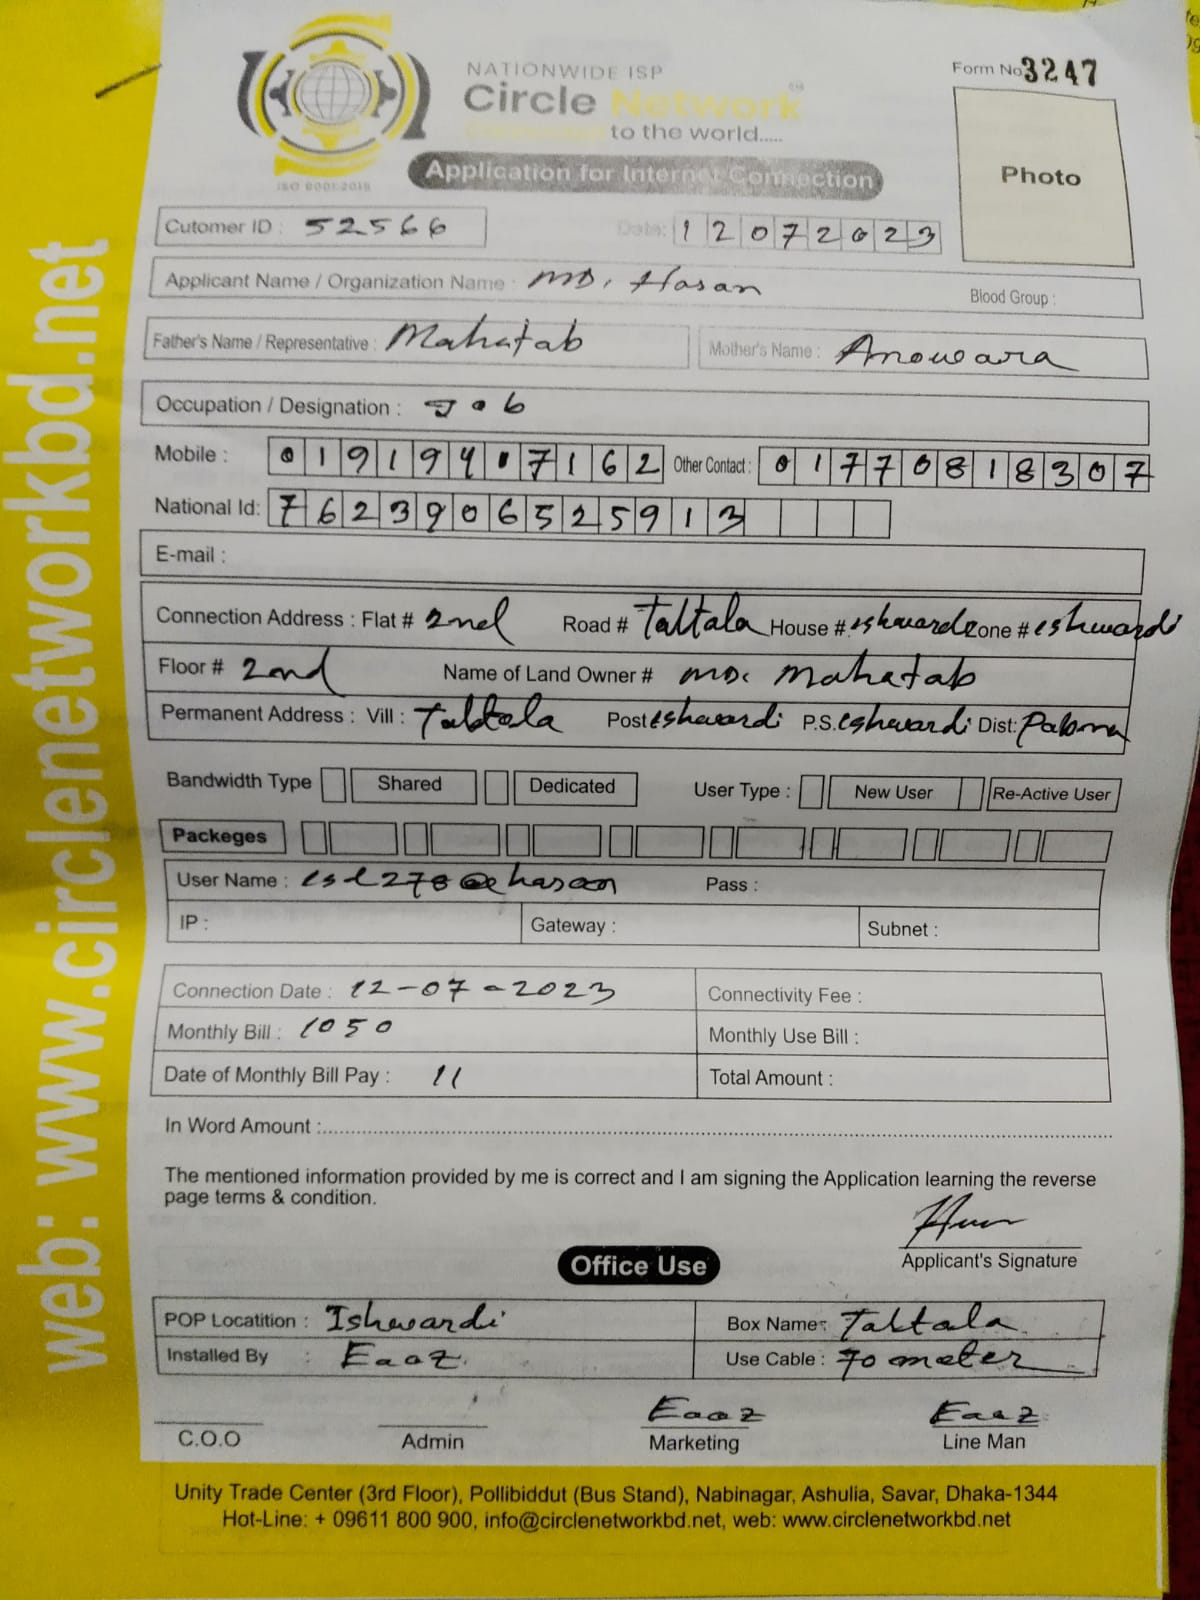 NATIONWIDE ISP
Circle Network
to the world.....
ISO 9001:2015
Form No 3247
Photo
Application for Internet Connection
Cutomer ID : 52566 Date: 12072023
Applicant Name / Organization Name : MD. Hasan Blood Group :
Father's Name / Representative : Mahatab Mother's Name : Anowara
Occupation / Designation : Job
Mobile : 01919407162 Other Contact : 01770818307
National Id: 7623906525913
E-mail :
Connection Address : Flat # 2nd Road # Taltala House # eshwardi Zone # eshwardi
Floor # 2nd Name of Land Owner # MD. Mahatab
Permanent Address : Vill : Taltala Post eshwardi P.S. eshwardi Dist: Pabna
Bandwidth Type Shared Dedicated User Type : New User Re-Active User
Packeges
User Name : Pass :
IP : Gateway : Subnet :
Connection Date : 12-07-2023 Connectivity Fee :
Monthly Bill : 1050 Monthly Use Bill :
Date of Monthly Bill Pay : 11 Total Amount :
In Word Amount :
The mentioned information provided by me is correct and I am signing the Application learning the reverse
page terms & condition.
Applicant's Signature
Office Use
POP Locatition : Ishwardi Box Name: Taltala
Installed By : Eaaz Use Cable : 70 meter
Eaaz Eaaz
C.O.O Admin Marketing Line Man
Unity Trade Center (3rd Floor), Pollibiddut (Bus Stand), Nabinagar, Ashulia, Savar, Dhaka-1344
Hot-Line: + 09611 800 900, info@circlenetworkbd.net, web: www.circlenetworkbd.net
web: www.circlenetworkbd.net